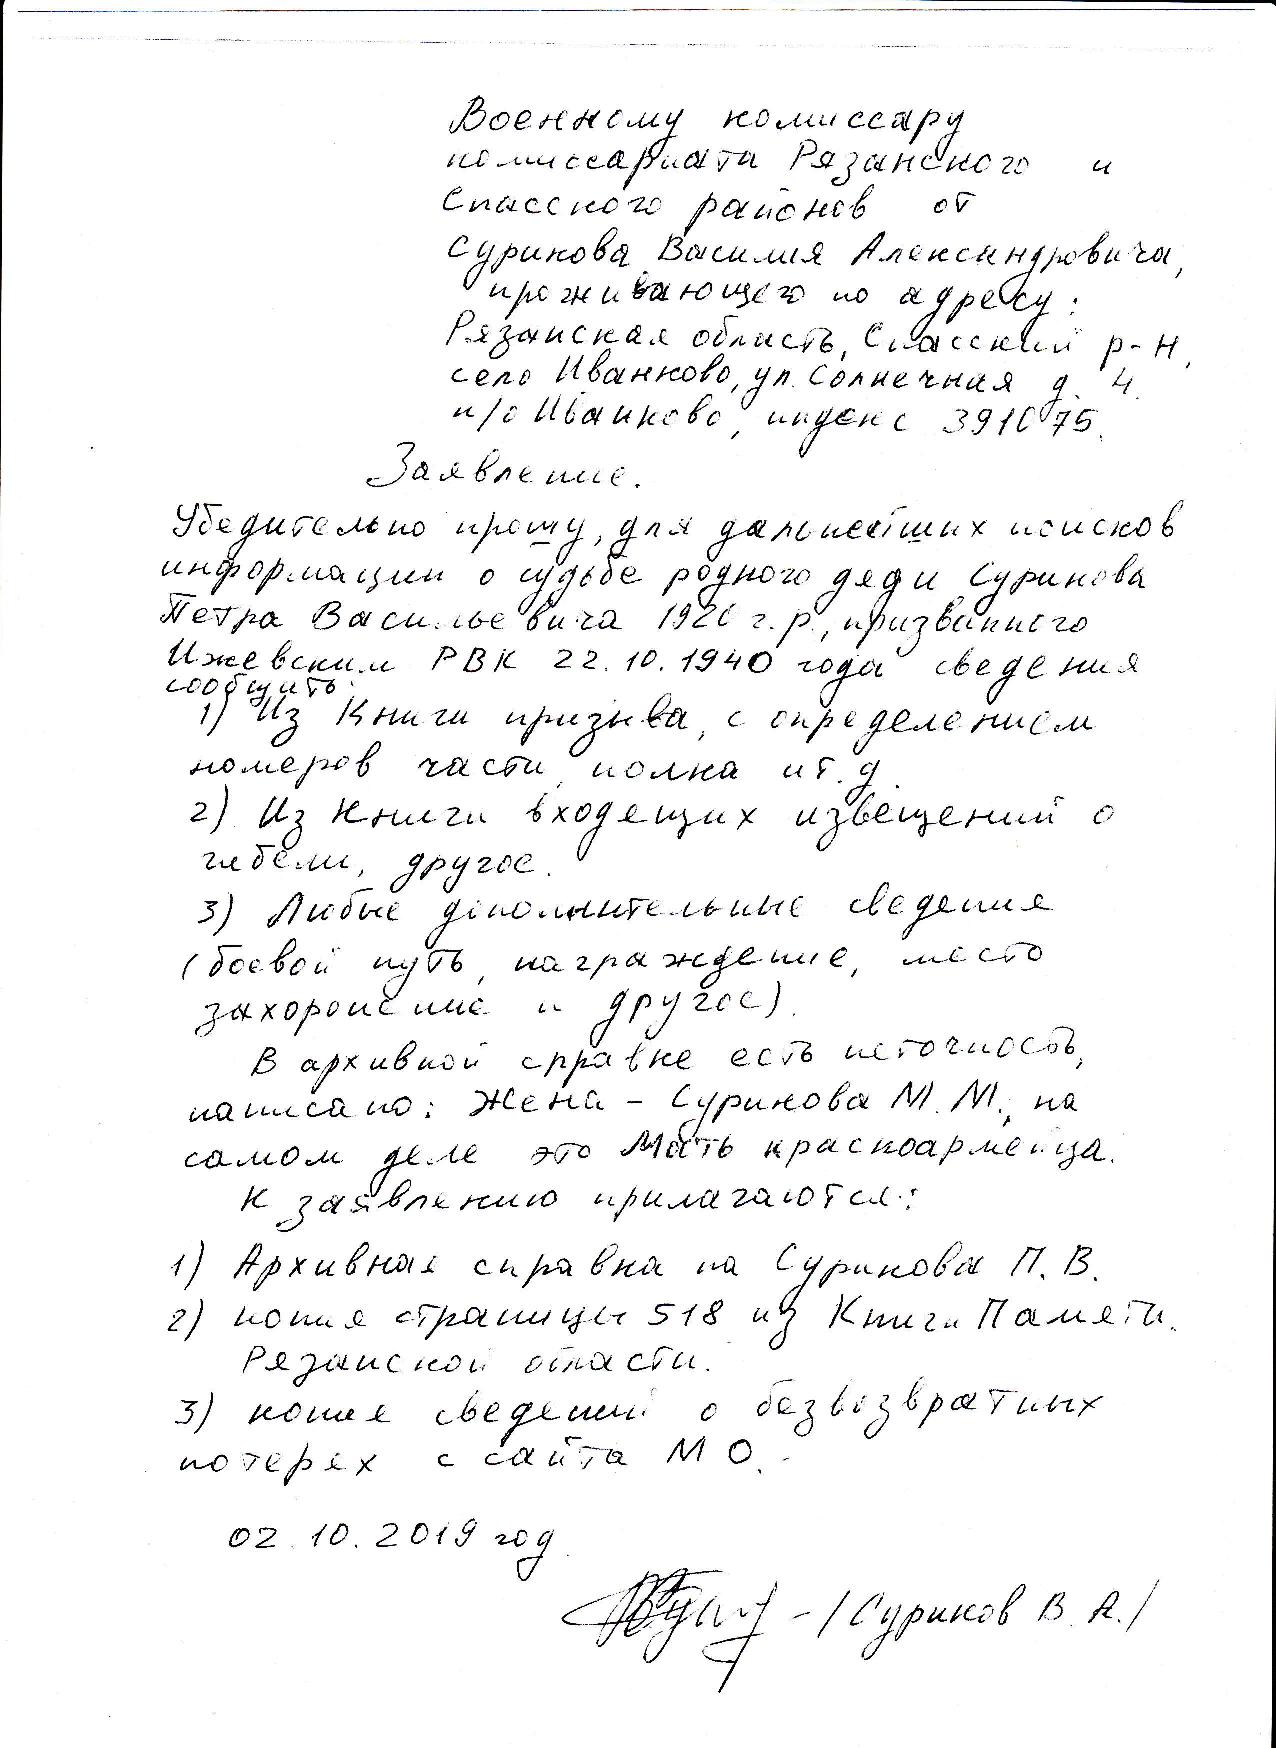 Военному комиссару
комиссариата Рязанского и
Спасского районов от
Сурикова Василия Александровича,
проживающего по адресу:
Рязанская область, Спасский р-н,
село Иванково, ул. Солнечная д. 4.
п/о Иванково, индекс 391075.
Заявление.
Убедительно прошу, для дальнейших поисков
информации о судьбе родного дяди Сурикова
Петра Васильевича 1920 г.р., призванного
Ижевским РВК 22.10.1940 года сведения
сообщить:
1) Из Книги призыва, с определением
номеров части, полка и т.д.
2) Из Книги входящих извещений о
гибели, другое.
3) Любые дополнительные сведения
(боевой путь, награждение, место
захоронение и другое).
В архивной спрравке есть неточность,
написано: Жена – Сурикова М.М., на
самом деле это Мать красноармейца.
К заявлению прилагаются:
1) Архивная справка на Сурикова П.В.
2) копия страницы 518 из Книги Памяти.
Рязанской области.
3) копия сведений о безвозвратных
потерях с сайта МО.
02.10.2019 год
– /Суриков В.А./